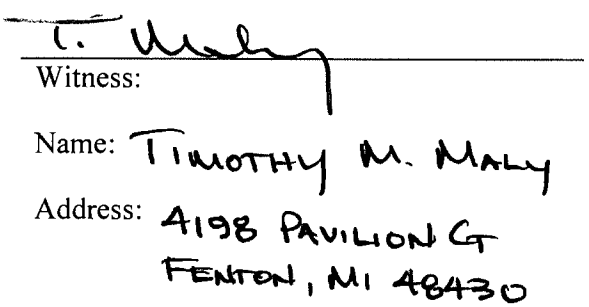 T. Maly
Witness:
Name: TIMOTHY M. MALY
Address: 4198 PAVILION CT
FENTON, MI 48430